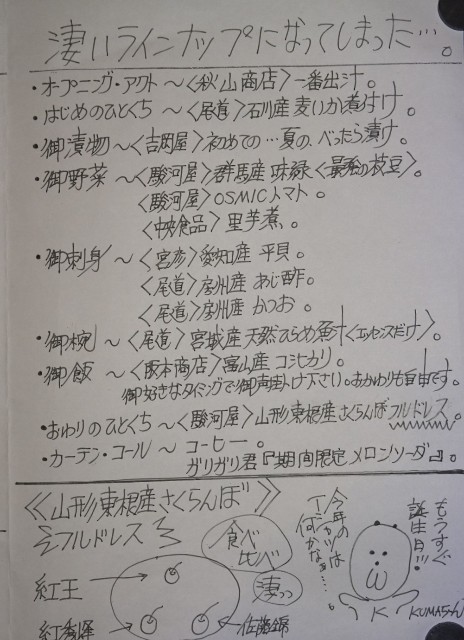 凄いラインナップになってしまった…。
・オープニング・アクト～〈秋山商店〉一番出汁。
・はじめのひとくち～〈尾道〉石川産麦いか煮付け。
・御漬物～〈吉岡屋〉初めての…夏の、べったら漬け。
・御野菜～〈駿河屋〉群馬産 味緑〈最強の枝豆〉。
〈駿河屋〉OSMICトマト。
〈中央食品〉里芋煮。
・御刺身～〈宮彦〉愛知産 平貝。
〈尾道〉房州産 あじ酢。
〈尾道〉房州産 かつお。
・御椀～〈尾道〉宮城産天然ひらめ魚汁〈エッセンスだけ〉。
・御飯～〈阪本商店〉富山産 コシヒカリ。
御好きなタイミングで御声掛け下さい。おかわりも自由です。
・おわりのひとくち～〈駿河屋〉山形東根産さくらんぼフルドレス。
・カーテン・コール～コーヒー。
ガリガリ君『期間限定メロンソーダ』。
《山形東根産さくらんぼ》
ミフルドレスミ
食べ比べ
凄っ
紅王
紅秀峰
佐藤錦
もうすぐ誕生日!!
今年のTシャツは何かなぁ…。
K
KUMAちゃん